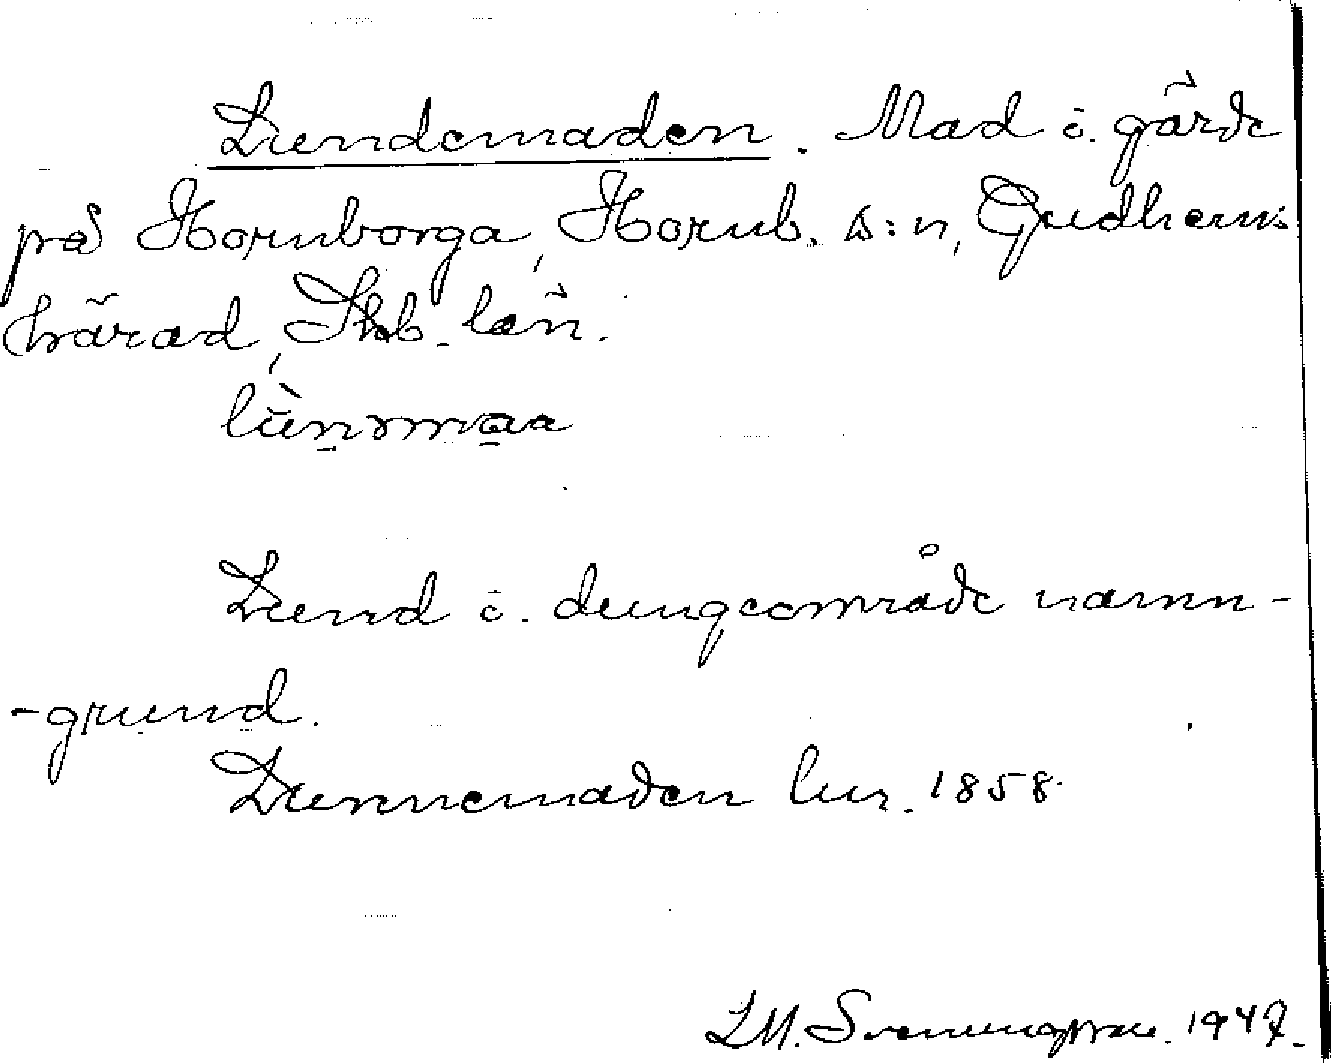 Lundemaden. Mad i gärde
på Hornborga, Hornb. s:n, Gudhems
härad, Skb. län.
lùnəmaa
Lund i dungområde namn-
-grund.
Lunnemaden lur. 1858.
LM. Svenungsson. 1947.